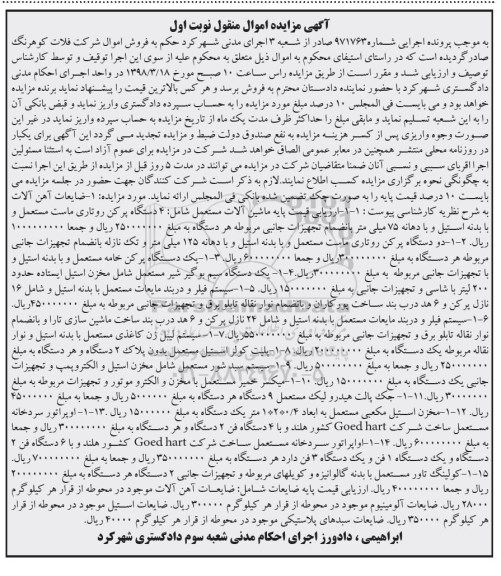 آگهی مزایده اموال منقول نوبت اول
به موجب پرونده اجرایی شماره۹۷۱۷۶۳ صادر از شعبه ۳ اجرای مدنی شهرکرد حکم به فروش اموال شرکت فلات کوهرنگ
صادرگردیده است که در راستای استیفای محکوم به اموال ذیل متعلق به محکوم علیه از سوی این اجرا توقیف و توسط کارشناس
توصیف و ارزیابی شد و مقرر است از طریق مزایده راس ساعت ۱۰ صبح مورخ ۱۳۹۸/۳/۱۸ در واحد اجرای احکام مدنی
دادگستری شهرکرد با حضور نماینده دادستان محترم به فروش برسد و هر کس بالاترین قیمت را پیشنهاد نماید برنده مزایده
خواهد بود و می بایست فی المجلس ۱۰ درصد مبلغ مورد مزایده را به حساب سپرده دادگستری واریز نماید و قبض بانکی آن
را به این شعبه تسلیم نماید و مابقی مبلغ را حداکثر ظرف مدت یک ماه از تاریخ مزایده به حساب سپرده واریز نماید در غیر این
صورت وجوه واریزی پس از کسر هزینه مزایده به نفع صندوق دولت ضبط و مزایده تجدید می گردد این آگهی برای یکبار
در روزنامه محلی منتشر همچنین در معابر عمومی الصاق خواهد شد شرکت در مزایده برای عموم آزاد است به استثنا مسئولین
اجرا اقربای سببی و نسبی آنان ضمنا متقاضیان شرکت در مزایده می توانند در مدت ۵ روز قبل از مزایده از طریق این اجرا نسبت
به چگونگی نحوه برگزاری مزایده کسب اطلاع نمایند.لازم به ذکر است شرکت کنندگان جهت حضور در جلسه مزایده می
بایست ۱۰ درصد قیمت پایه را به صورت چک تضمین شده بانکی فی المجلس ارائه نمایند. مورد مزایده: ۱-ضایعات آهن آلات
به شرح نظریه کارشناسی پیوست :۱-۱-ارزیابی قیمت پایه ماشین آلات مستعمل شامل: ۴ دستگاه پرکن روتاری ماست مستعمل و
با بدنه استیل و با دهانه ۷۵ میلی متر بانضمام تجهیزات جانبی مربوطه هر دستگاه به مبلغ ریال و جمعا
ریال. ۲-۱-دو دستگاه پرکن روتاری ماست مستعمل و با بدنه استیل و با دهانه ۱۲۵ میلی متر و تک نازله بانضمام تجهیزات جانبی
مربوطه هر دستگاه به مبلغ ریال و جمعا ریال. ۳-۱-یک دستگاه پرکن خامه مستعمل و با بدنه استیل و
با تجهیزات جانبی مربوطه به مبلغ ریال.۴-۱-یک دستگاه سیم بوگیر شیر مستعمل شامل مخزن استیل ایستاده حدود
۲۰۰ لیتر با شاسی و تجهیزات جانبی به مبلغ ریال. ۵-۱-سیستم فیلر و دربند مایعات مستعمل با بدنه استیل و شامل ۱۶
نازل پرکن و ۶ هد درب بند ساخت پورکاران و بانضمام نوار نقاله تابلو برق و تجهیزات جانبی مربوطه به مبلغ ریال.
۶-۱-سیستم فیلر و دربند مایعات مستعمل با بدنه استیل و شامل ۲۴ نازل پرکن و ۶ هد درب بند ساخت ماشین سازی تارا و بانضمام
نوار نقاله تابلو برق و تجهیزات جانبی مربوطه به مبلغ ریال. ۷-۱-سیستم لیبل زن کاغذی مستعمل با بدنه استیل و نوار
نقاله مربوطه یک دستگاه به مبلغ ریال. ۸-۱-پلیت کولر استیل مستعمل بدون پلاک ۲ دستگاه و هر دستگاه به مبلغ
ریال و جمعا ریال. مستعمل شامل مخزن استیل و الکتروپمپ و تجهیزات
جانبی یک دستگاه به مبلغ ریال. ۱۰-۱-میکسر خمیر مستعمل با مخزن و الکترو موتور و تجهیزات مربوطه به مبلغ
ریال.۱۱-۱-جک پالت هیدرو لیک مستعمل ۹ دستگاه هر دستگاه به مبلغ ریال و جمعا به مبلغ
ریال. ۱۲-۱-مخزن استیل مکعبی مستعمل به ابعاد متر یک دستگاه به مبلغ ریال. ۱۳-۱- اواپراتور سردخانه
مستعمل ساخت شرکت Goed hart کشور هلند و با ۴ دستگاه فن ۲ دستگاه و هر دستگاه به مبلغ ریال و جمعا
به مبلغ ریال. ۱۴-۱-اواپراتور سردخانه مستعمل ساخت شرکت Goed hart کشور هلند و با ۶ دستگاه فن ۲
دستگاه و یک دستگاه ۱ فن و یک دستگاه ۳ فن دارد هر دستگاه به مبلغ ریال و جمعا به مبلغ ریال.
۱۵-۱-کولینگ تاور مستعمل با بدنه گالوانیزه و کویلهای مربوطه و تجهیزات جانبی ۲ دستگاه هر دستگاه به مبلغ
ریال و جمعا ریال. ارزیابی قیمت پایه ضایعات شامل: ضایعات آهن آلات موجود در محوطه از قرار هر کیلوگرم
۲۸۰۰۰ ریال. ضایعات آلومینیوم موجود در محوطه از قرار هر کیلوگرم ریال. ضایعات استیل موجود در محوطه از قرار
هر کیلوگرم ریال. ضایعات سبدهای پلاستیکی موجود در محوطه از قرار هر کیلوگرم ۴۰۰۰۰ ریال.
ابراهیمی ، دادورز اجرای احکام مدنی شعبه سوم دادگستری شهرکرد